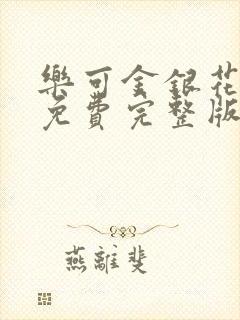 樂可金銀花
免費完整版
燕離斐